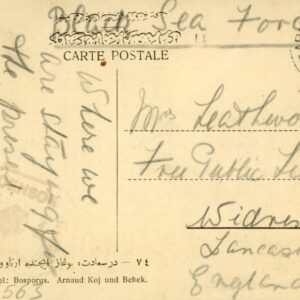 Black Sea For
CARTE POSTALE
Where we
are staying for
the present
Mrs Leathwo
Free Public Li
Widnes
Lancas
England
٧٤ — در سعادت: بوغاز ایچنده ارناو
el: Bosporus. Arnaud Koj und Bebek.
563